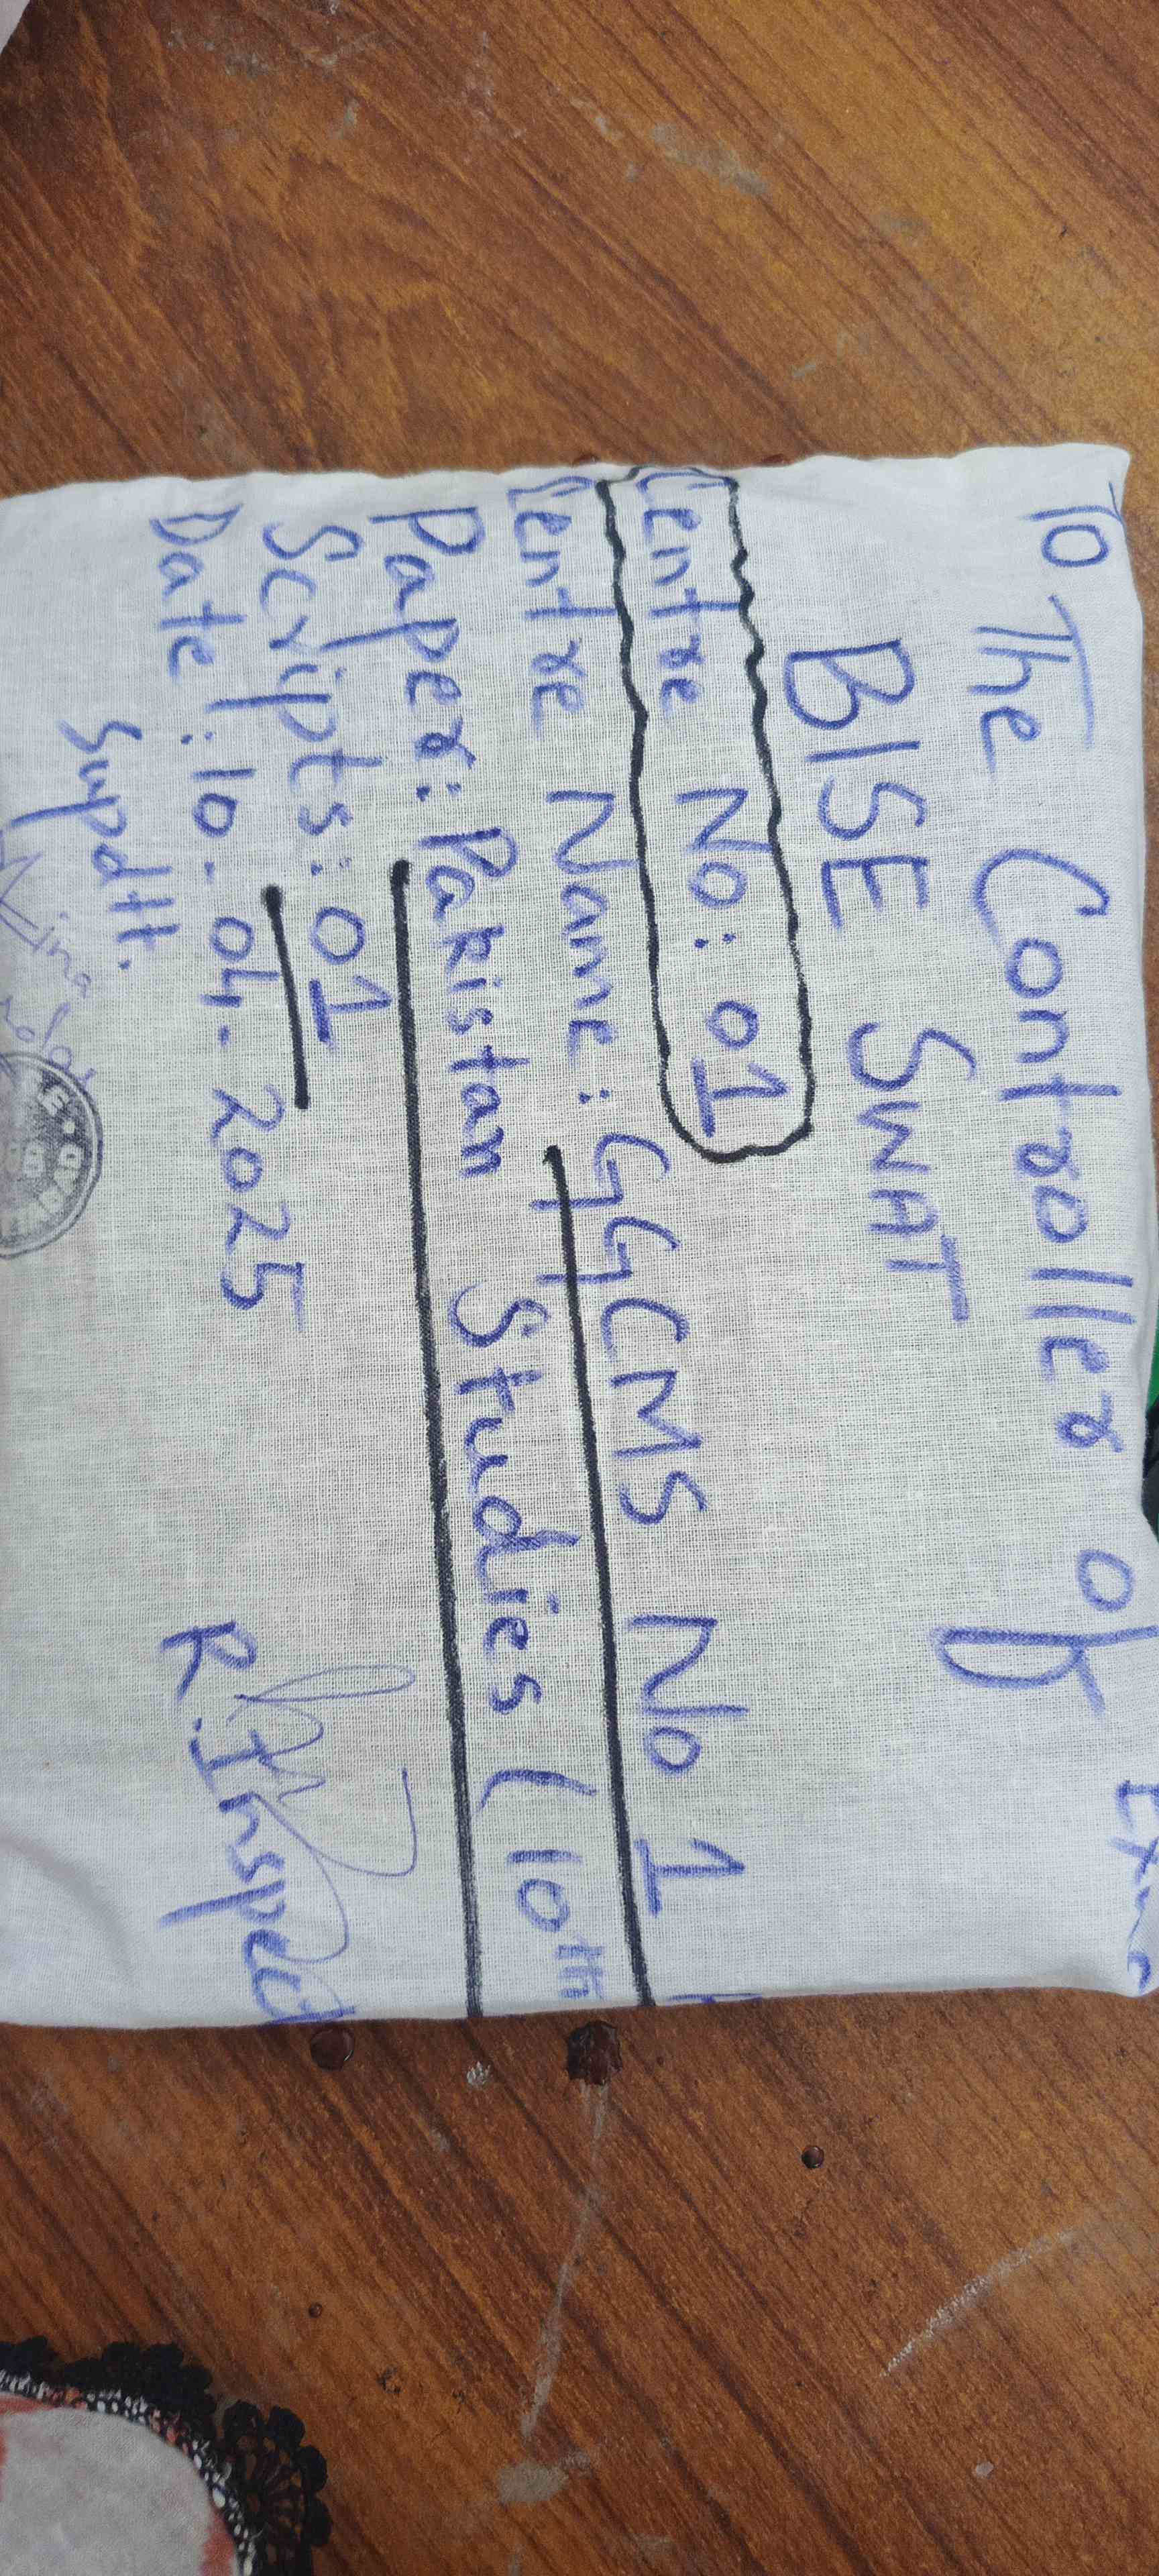 To
The Controller of Exam
BISE SWAT
Centre No: 01
Centre Name: GGCMS No 1
Paper: Pakistan Studies (10th
Scripts: 01
Date: 10-04-2025
Supdtt.
R.Inspec